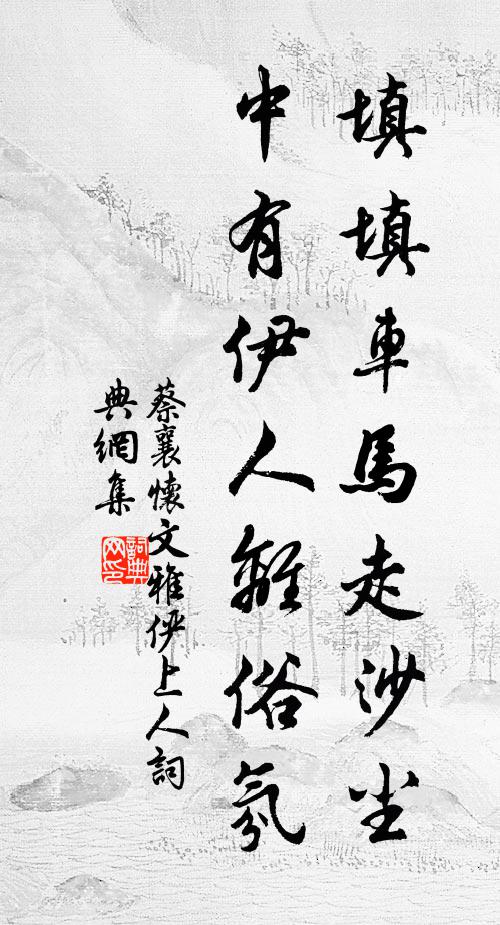 填填車馬走沙尘
中有伊人離俗氛
蔡襄懷文雅伊上人詞
典網集
詞典
网印